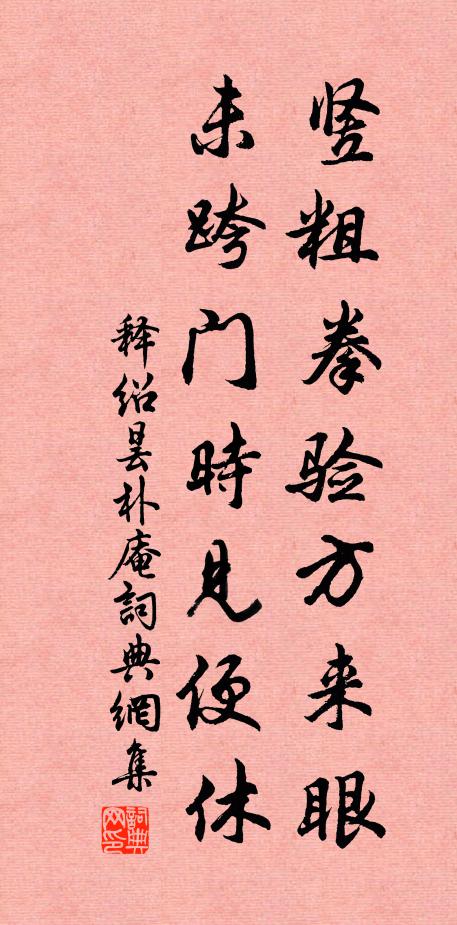 竖粗拳验方来眼
未跨门時見便休
释绍昙朴庵詞典網集
詞典网印